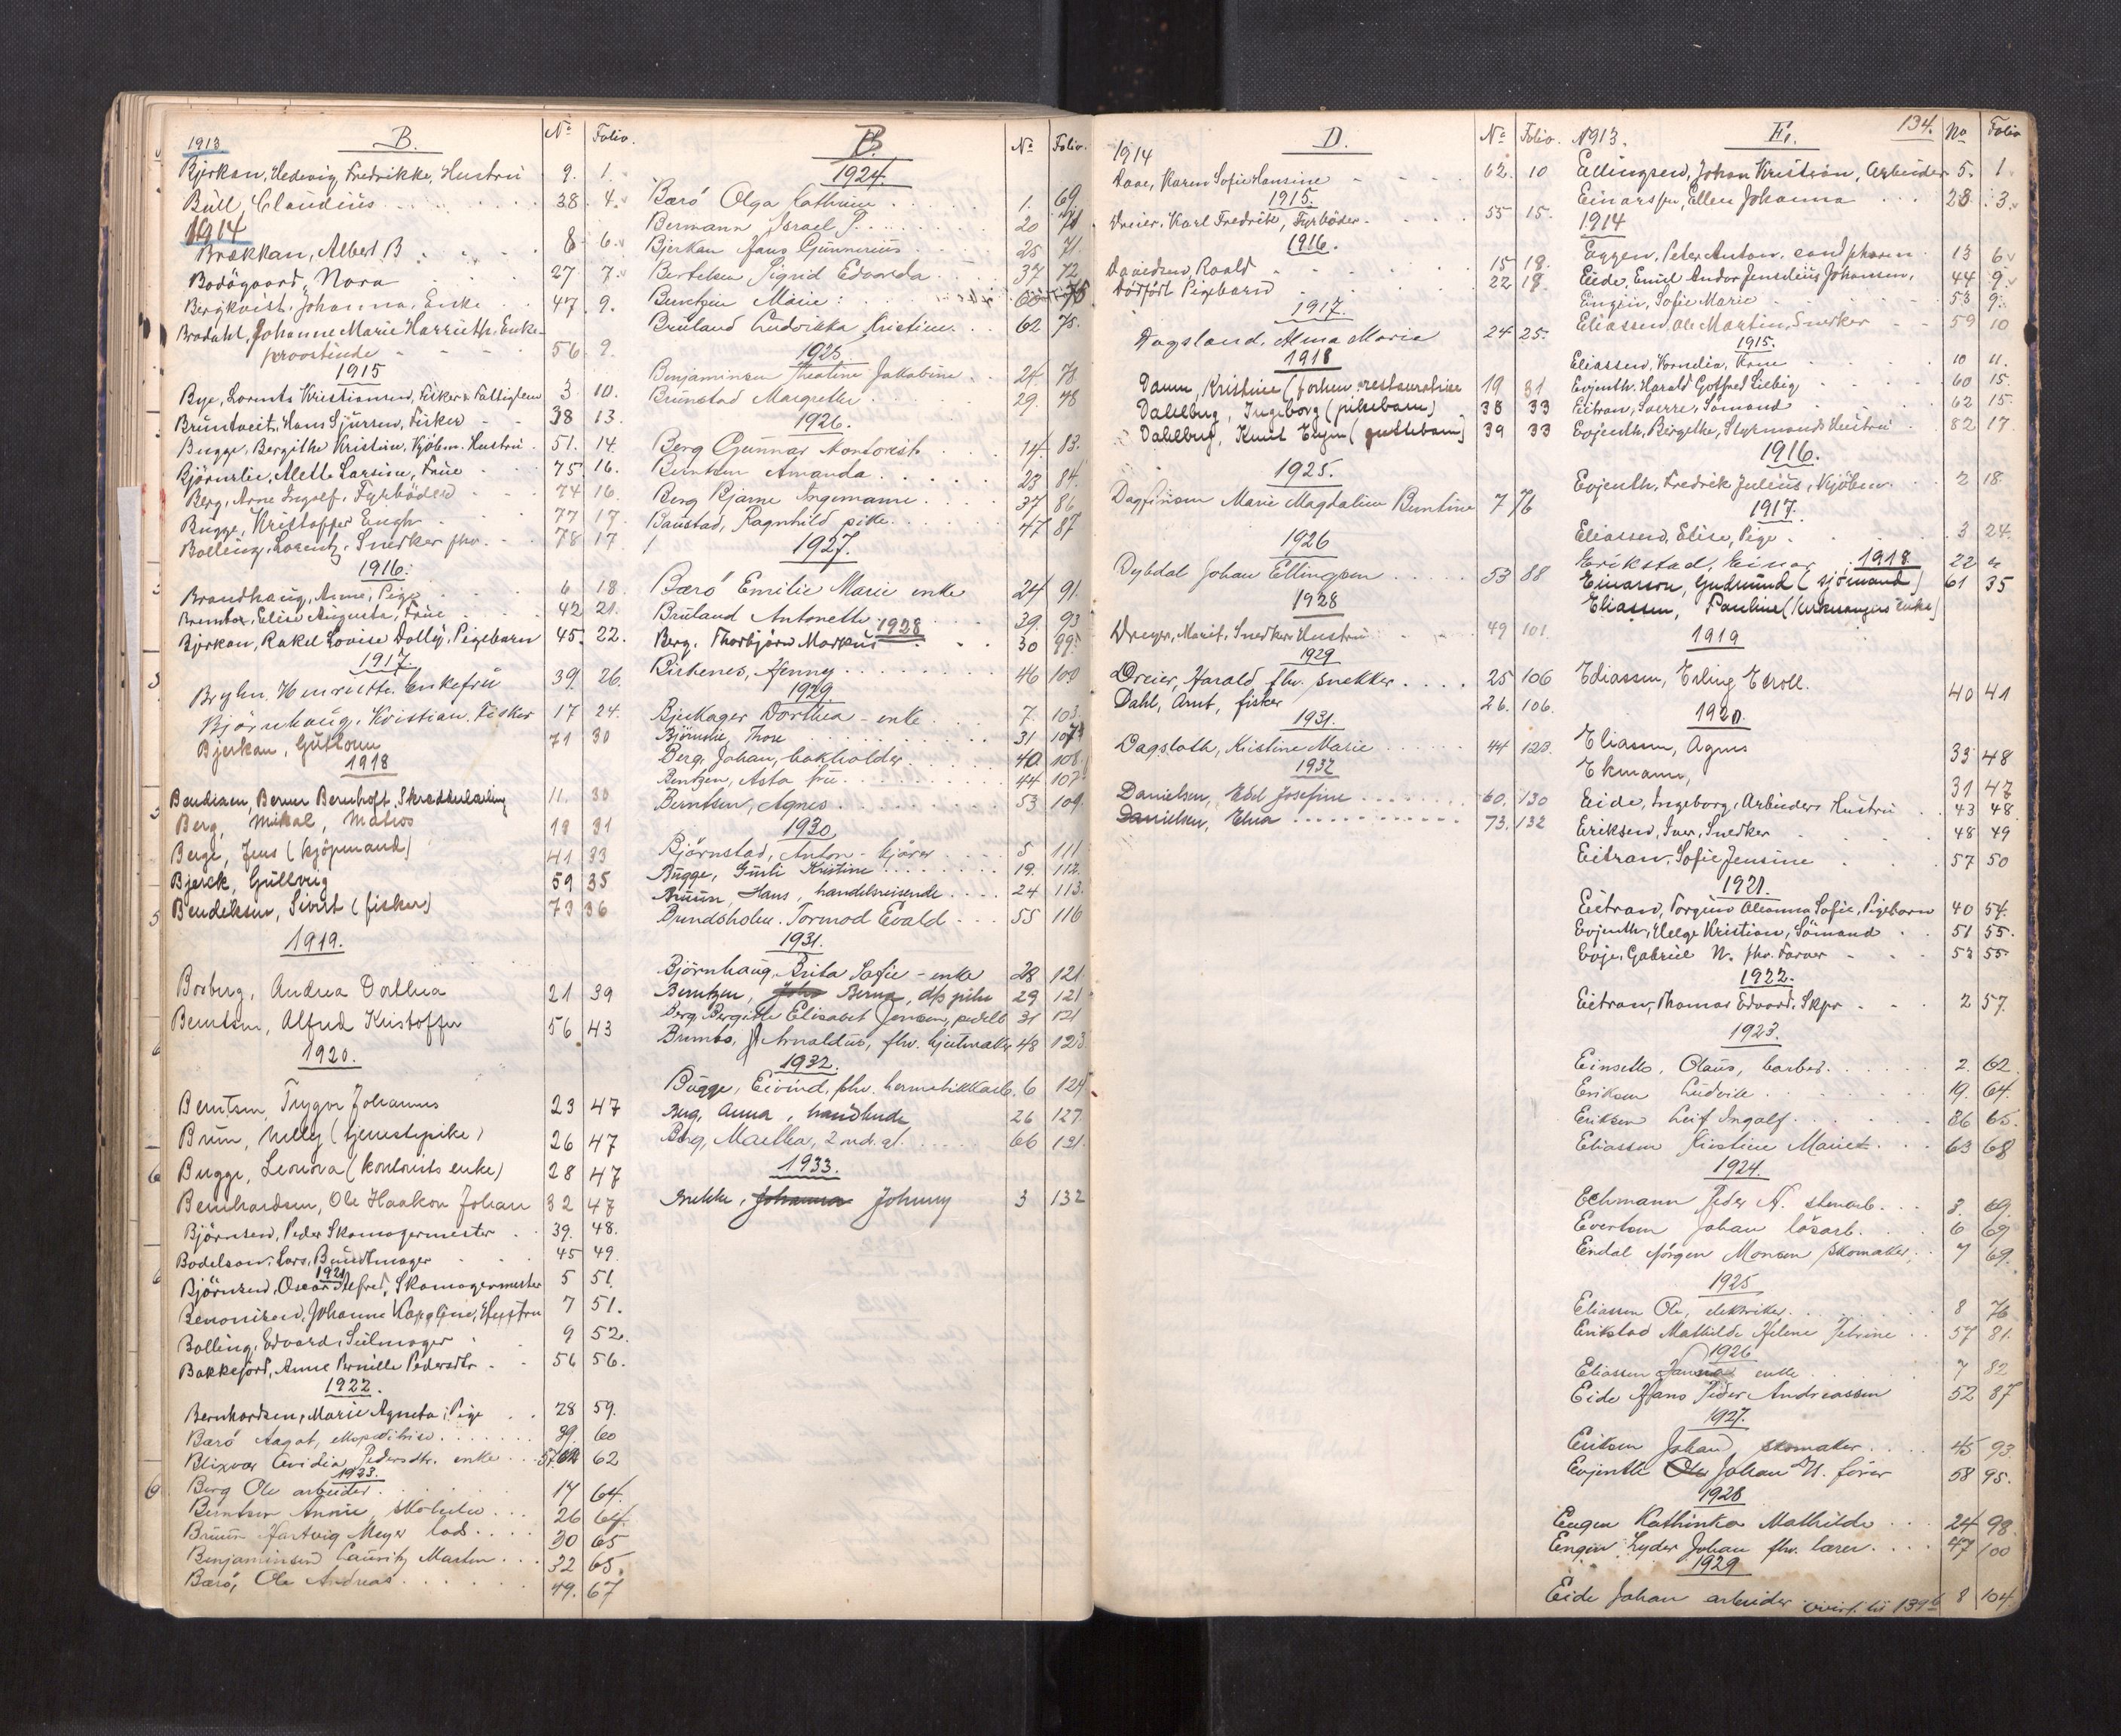 1913 B. No Folio.
Bjerkan, Hedevig Fredrikke, Hustru 9. 1.
Büll, Claudius 38. 4.
1914
Brækkan, Albert B 8 6.
Bodøgaard, Nora 27 7.
Bergkvist, Johanna, Enke 47. 9.
Brodahl, Johanne Marie Harriet, Enke-
provstinde 56 9.
1915
Bye, Lornts Kristiansen, Fisker & Fattiglem 3 10.
Bruntveit, Hans Sjursen, Fisker 38 13.
Bugge, Bergithe Kristine, Kjøbm. Hustru 51. 14.
Bjørnslie, Alette Larsine, Frue 75 16.
Berg, Arne Ingolf, Fyrbøder 74 16.
Bugge, Kristoffer Engh 77 17.
Bolling, Lorentz, Snedker fhv. 78 17.
1916.
Brandhaug, Anne, Pige 6 18.
Bremtos, Elise Augusta, Frue 42 21.
Bjerkan, Rakel Lovise Dolly, Pigebarn 45. 22.
1917.
Bryhn, Henriette, Enkefru 39. 26.
Bjørnhaug, Kristian, Fisker 17 24.
Bjerkan, Guttorm 71 30
1918
Bendixen, Berner Bernhoft, Skrædderlærling 11. 30
Berg, Mikal, Matros 19 31
Berge, Jens (kjøpmand) 41 33
Bjerck, Gullveig 59 35
Bendiksen, Sivert (fisker) 73 36
1919.
Borberg, Andrea Dorthea 21 39
Berntsen, Alfred Kristoffer 56 43
1920.
Berntsen, Trygve Johannes 23 47
Brun, Nelly (tjenestepike) 26 47
Bugge, Leonora (kontorists enke) 28 47
Bernhardsen, Ole Haakon Johan 32 47
Bjørnsen, Peder Skomagermester 39. 48.
Bodelson, Lars, Bundtmager 45 49.
1921
Bjørnsen, Oscar Alfred, Skomagermester 5 51.
Benonisen, Johanne Karoline, Hustru 7 51.
Bolling, Edvard, Seilmager 9 52.
Bakkefjord, Anne Pernille Pedersdtr. 56 56.
1922.
Bernhardsen, Marie Agneta, Pige 28 59.
Bærø Aagot, ekspeditrise 39. 60
Blixvær Ovidia Pedersdtr. enke 57. 62
1923.
Berg Ole arbeider 17 64.
Berntsen Annie 26 64.
Bruun Hartvig Meyer lods 30 65
Benjaminsen Lauritz Martin 32 65.
Bærø, Ole Andreas 49. 67
B. No Folio.
1924.
Bærø Olga Cathrine 1. 69.
Bermann Israel P. 20 70
Bjerkan Hans Gunnerius 25 71.
Bertelsen Sigrid Edvarda 37 72
Berntzen Marie 60 75
Bruland Ludvikka Kristine 62 75.
1925.
Benjaminsen Theatine Jakobine 24 78
Brunstad Margrethe 29. 78
1926.
Berg Gunnar Kontorist 14 83.
Berntsen Amanda 23 84.
Berg Bjarne Ingemann 37 86
Banstad, Ragnhild pike 47 87
1927.
Bærø Emilie Marie enke 24 91.
Bruland Antonette 39. 93
1928
Berg, Thorbjørn Markus 30 99.
Birkenes, Henny 46 100
1929.
Bjerkager Dorthea - enke 7. 103.
Bjørnslie, Thore 31 107
Berg, Johan, bokholder 40 108.
Bentzen, Asta fru 44 107
Berntsen, Agnes 53 109.
1930
Bjørnstad, Anton - kjører 5 111.
Bugge, Gusti Kristine 19. 112.
Bruun, Hans, handelsreisende 24 113.
Brundsholm. Tormod Evald 55 116
1931.
Bjørnhaug, Brita Sofie - enke 28 121.
Berntzen, Berna, dfs pike 29 121
Berg, Bergitte Elisabet Jensen, 31 121
Bremtos, Arnoldus, fhv. hjulmaker 48 123.
1932.
Bugge, Eivind, fhv. hermetikkarb. 6 124
Berg, Anna, handlende 26 127.
Berg, Martha, 2 md. gl. 66 131.
1933.
Brekke, Johanna Johnny 3 132
1914 D. No Folio.
Daae, Karen Sofie Hansine 62. 10
1915.
Dreier, Karl Fredrik, Fyrbøder 55 15.
1916.
Davidsen, Roald 15 18.
Dødfødt Pigebarn 22 18.
1917.
Dagsland, Alma Marie 24 25.
1918
Damm, Kristine (forhen restauratrise 19 31
Dahlberg, Ingeborg (pikebarn) 38 33
Dahlberg, Knut Elgen (guttebarn) 39 33
1925.
Dagfinsen Marie Magdalene Bentine 7 76
1926
Dybdal Johan Ellingsen 53 88
1928
Dreyer, Marit, Snedkers Hustru 49 101.
1929
Dreier, Harald fhv. snekker 25 106
Dahl, Arnt, fisker 26. 106.
1931.
Dagsloth, Kristine Marie 44 123.
1932
Danielsen, Edel Josefine 60. 130
Danielsen, Elna 73. 132
1913. E. 134. No Folio
Ellingsen, Johan Kristian, Arbeider 5. 1.
Einarsen, Ellen Johanna 28 3.
1914
Eggen, Peter Anton, cand pharm 13 6
Eide, Emil Andor Jenselius Johansen, 44 9.
Engen, Sofie Marie 53 9.
Eliassen, Ole Martin, Snedker 59 10
1915.
Eliassen, Kornelia, Kone 10 11.
Evjenth, Harald Gotfred Liebig 60 15.
Eitran, Sverre, Sømand 62 15.
Evjenth, Bergethe, Styrmands Hustru 82 17.
1916.
Evjenth, Fredrik Julius, Kjøbm. 2 18.
1917.
Eliassen, Elise, Pige 3 24.
Erikstad, Einar 22 "
1918
Einarson, Gudmund (sjømand) 61 35
Eliassen, Pauline (kirkesangers enke)
1919
Eliassen, Erling Eroll. 40 41
1920.
Eliassen, Agnes 33 48
Ekmann, 31 47
Eide, Ingeborg, Arbeiders Hustru 43 48
Eriksen, Iver, Snedker 48 49
Eitran, Sofie Jensine 57 50
1921.
Eitran, Torgine Oleanna Sofie, Pigebarn 40 54.
Evjenth, Helge Kristian, Sømand 51 55.
Evje, Gabriel N. fhv. Farver 53 55
1922.
Eitran, Thomas Edvard, Skpr 2 57.
1923.
Einseth, Olaus, barber 2. 62
Eriksen Ludvik 19. 64.
Eriksen Leif Ingolf 36 65.
Eliassen Kirstine Marie 63 68
1924.
Echmann Peder A. stenarb. 3. 69.
Evertsen Johan løsarb. 6 69
Endal Jørgen Monsen skomaker 7 69.
1925
Eliassen Ole, elektriker 8 76
Erikstad Mathilde Helene Petrine 57 81.
1926
Eliassen enke 7 82
Eide Hans Peder Andreassen 52 87
1927.
Eriksen Johan skomaker 45 93.
Evjenth Ole Johan H. fører 58 95.
1928
Eugen Kathinka Mathilde 24 98.
Engen Lyder Johan fhv. lærer 47 100
1929
Eide Johan arbeider overf. til 139 8 104